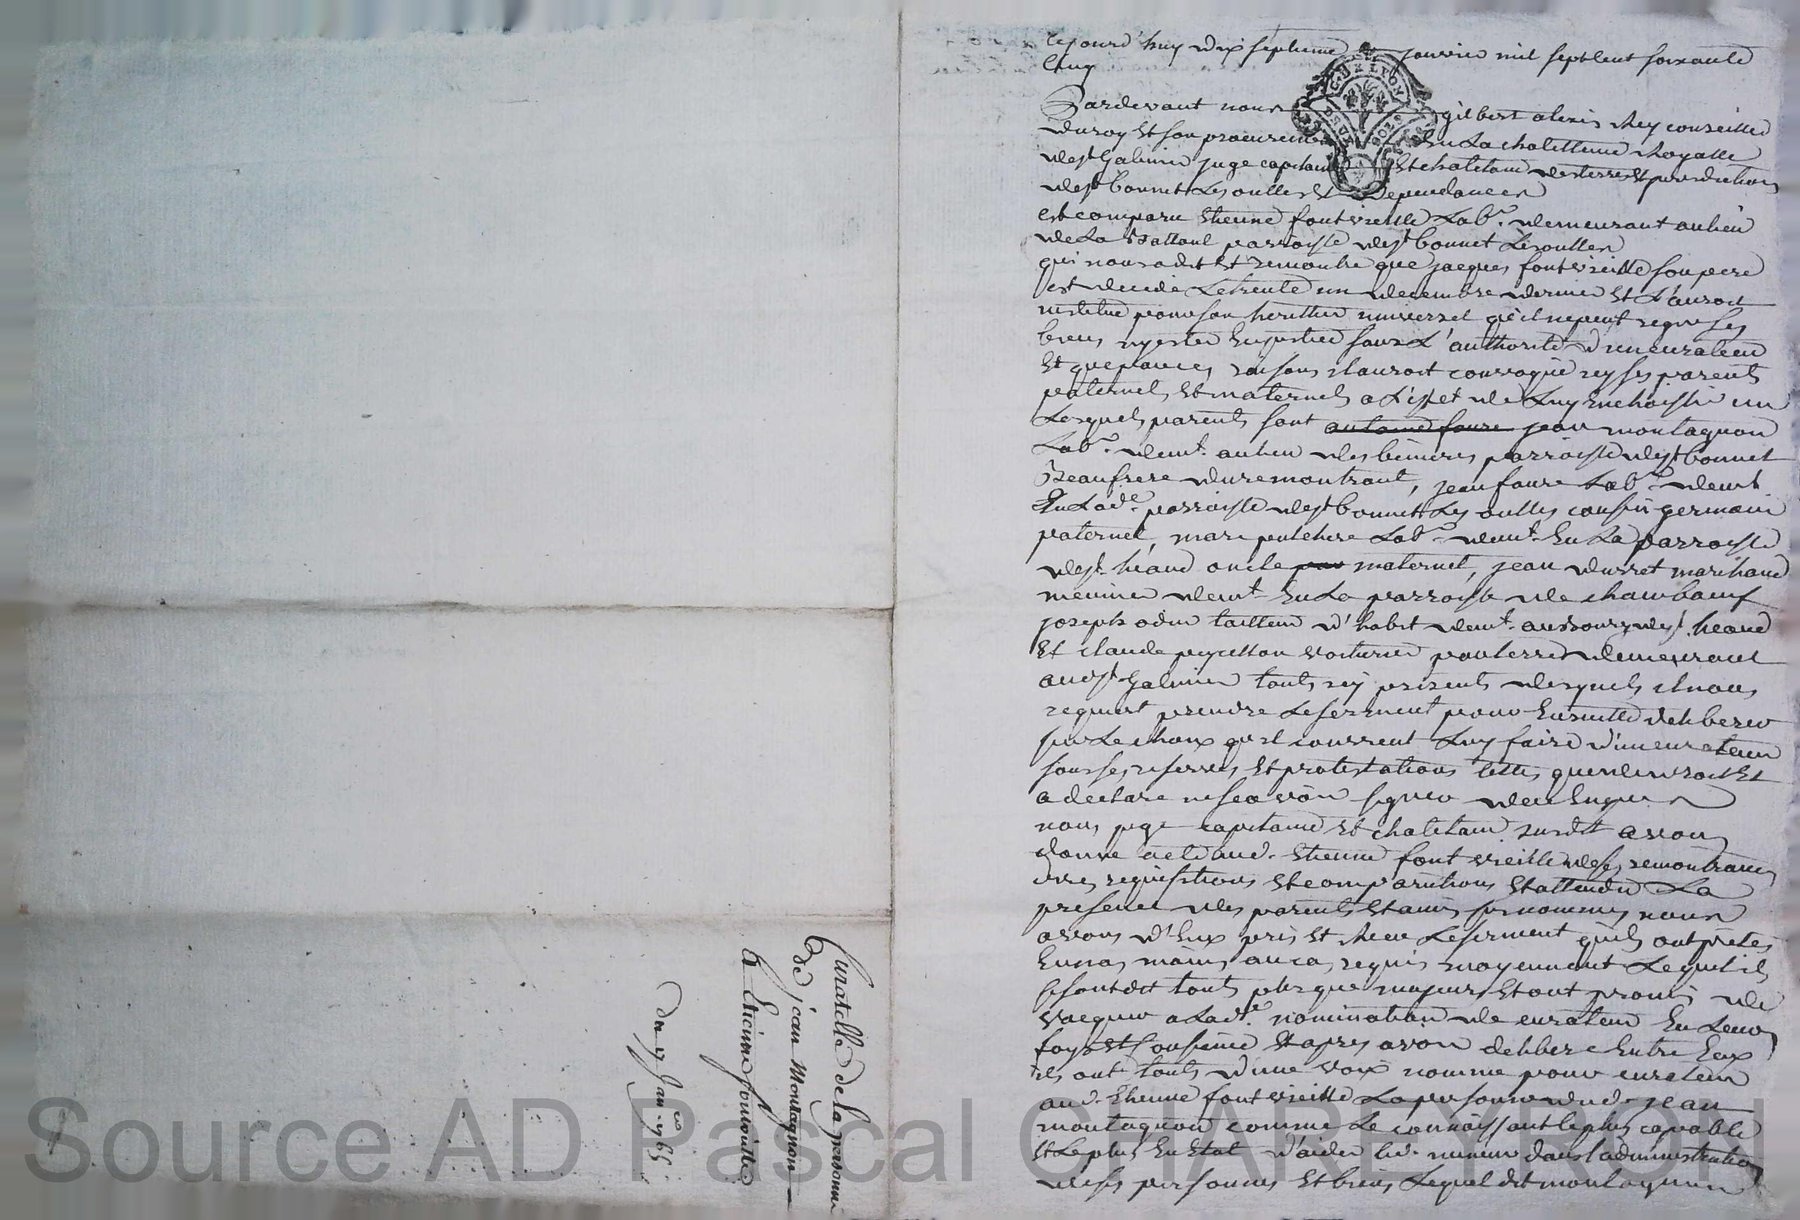 cejourd'huy dix septieme janvier mil sept cent soixante
cinq
Pardevant nous gilbert alexis Rey conseiller
du roy et son procureur En La chatellenie Royalle
de st Galmier juge capitaine Et chatelain des terres et jurediction
de st bonnet Les oulles Et Dependances
est comparu Etienne fontvieille Labr. demeurant au lieu
de La parroisse de st bonnet Les oulles
qui nous a dit Et remontré que jacques fontvieille son pere
est decedé Le trente un decembre dernier Et L'auroit
institué pour son heritier universel qu'il ne peut regir ses
biens ny ester En justice sans L'authorité d'un curateur
Et que pour ces raisons il auroit convoqué icy ses parents
paternels Et maternels a L'effet de Luy En choisir un
Lesquels parents sont antoine faure jean montagnon
Labr. demt. au lieu des parroisse de st bonnet
Beaufrere du remontrant, jean faure Labr. demt
En Lade. parroisse de st bonnet Les oulles cousin germain
paternel, Labr. demt. En La parroisse
de st. héand oncle pat maternel, jean marchand
meunier demt. En La parroisse de chambœuf
joseph odin tailleur d'habit demt. au bourg de st. heand
Et claude voiturier par terre demeurant
au dt st Galmier touts icy présents desquels il nous
requiert prendre Le serment pour Ensuitte deliberer
sur Le choix qu'il convient Luy faire d'un curateur
sous ses reserves Et protestations telles que de droit Et
a declaré ne scavoir signer de ce Enquis
nous juge capitaine Et chatelain susdit avons
donné acte aud. Etienne fontvieille de ses remontrances
requisitions Et comparutions Et attendu La
presence des parents Et amis susnommés nous
avons d'Eux pris Et Receu Le serment qu'ils ont prétés
En nos mains au cas requis moyennant Lequel ils
se sont dit touts plus que majeurs Et ont promis de
vacquer a Lade. nomination de curateur En Leur
foy Et consience Et apres avoir deliberé Entre Eux
ils ont touts d'une voix nommé pour curateur
aud. Etienne fontvieille La personne dud. jean
montagnon comme Le connoissant le plus capable
Et Le plus En Etat d'aider led. mineur dans l'administration
de ses personnes Et biens Lequel dit montagnon
Curatelle de la personne
de jean Montagnon
à Etienne fontvieille
du 17 Janer. 1765.
G. DE LYON
Source AD Pascal CHAREYRON